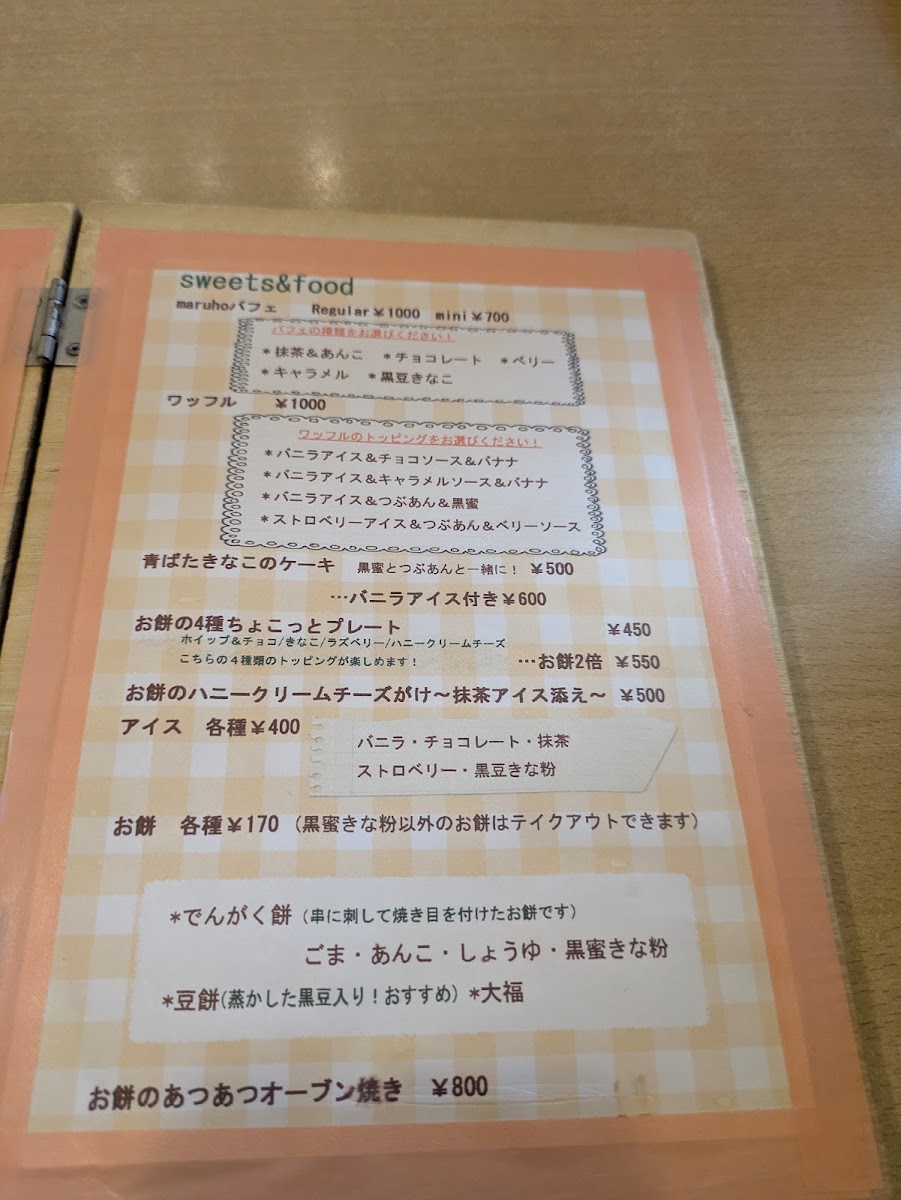 sweets&food
maruhoパフェ Regular￥1000 mini￥700
パフェの種類をお選びください！
＊抹茶＆あんこ ＊チョコレート ＊ベリー
＊キャラメル ＊黒豆きなこ
ワッフル ￥1000
ワッフルのトッピングをお選びください！
＊バニラアイス＆チョコソース＆バナナ
＊バニラアイス＆キャラメルソース＆バナナ
＊バニラアイス＆つぶあん＆黒蜜
＊ストロベリーアイス＆つぶあん＆ベリーソース
青ばたきなこのケーキ 黒蜜とつぶあんと一緒に！ ￥500
…バニラアイス付き￥600
お餅の4種ちょこっとプレート ￥450
ホイップ＆チョコ/きなこ/ラズベリー/ハニークリームチーズ
こちらの４種類のトッピングが楽しめます！ …お餅2倍 ￥550
お餅のハニークリームチーズがけ～抹茶アイス添え～ ￥500
アイス 各種￥400
バニラ・チョコレート・抹茶
ストロベリー・黒豆きな粉
お餅 各種￥170（黒蜜きな粉以外のお餅はテイクアウトできます）
＊でんがく餅（串に刺して焼き目を付けたお餅です）
ごま・あんこ・しょうゆ・黒蜜きな粉
＊豆餅(蒸かした黒豆入り！おすすめ) ＊大福
お餅のあつあつオーブン焼き ￥800